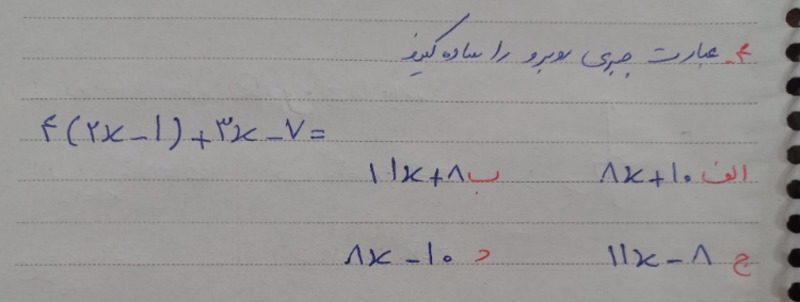 ۴- عبارت جبری روبرو را ساده کنید
۴(۲x-۱)+۳x-۷=
الف ۸x+۱۰ ب ۱۱x+۸
ج ۱۱x-۸ د ۸x-۱۰